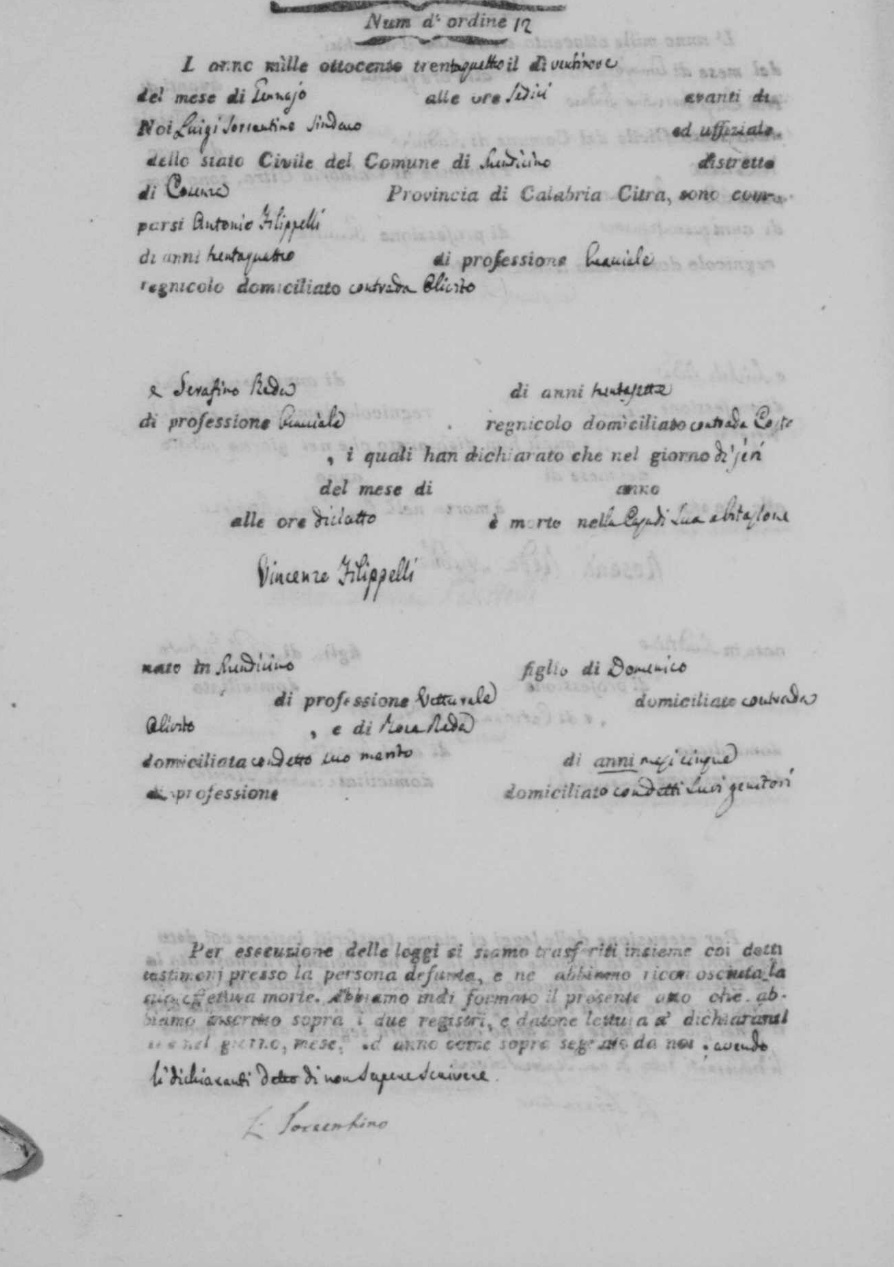 Num d'ordine 12
L anno mille ottocento trentaquattro il dì ventinove
del mese di Gennajo alle ore Sedici avanti di
Noi Luigi Sorrentino Sindaco ed uffiziale
dello stato Civile del Comune di distretto
di Cosenza Provincia di Calabria Citra, sono com-
parsi Antonio Filippelli
di anni trentaquattro di professione Bracciale
regnicolo domiciliato contrada Oliveto
e Serafino Reda di anni trentasette
di professione Bracciale regnicolo domiciliato contrada Coste
, i quali han dichiarato che nel giorno di jeri
del mese di anno
alle ore diciotto è morto nella Casa di Sua abitazione
Vincenzo Filippelli
nato in figlio di Domenico
di professione Vetturale domiciliato contrada
Oliveto , e di Rosa Reda
domiciliata condetto suo marito di anni mesi cinque
di professione domiciliato condetti Suoi genitori
Per esecuzione delle leggi ci siamo trasferiti insieme coi detti
testimonj presso la persona defunta, e ne abbiamo riconosciuta la
sua effettiva morte. Abbiamo indi formato il presente atto che ab-
biamo inscritto sopra i due registri, e datone lettura a' dichiaranti
nel giorno, mese, ed anno come sopra segnato da noi, avendo
li dichiaranti detto di non Sapere Scrivere.
L. Sorrentino